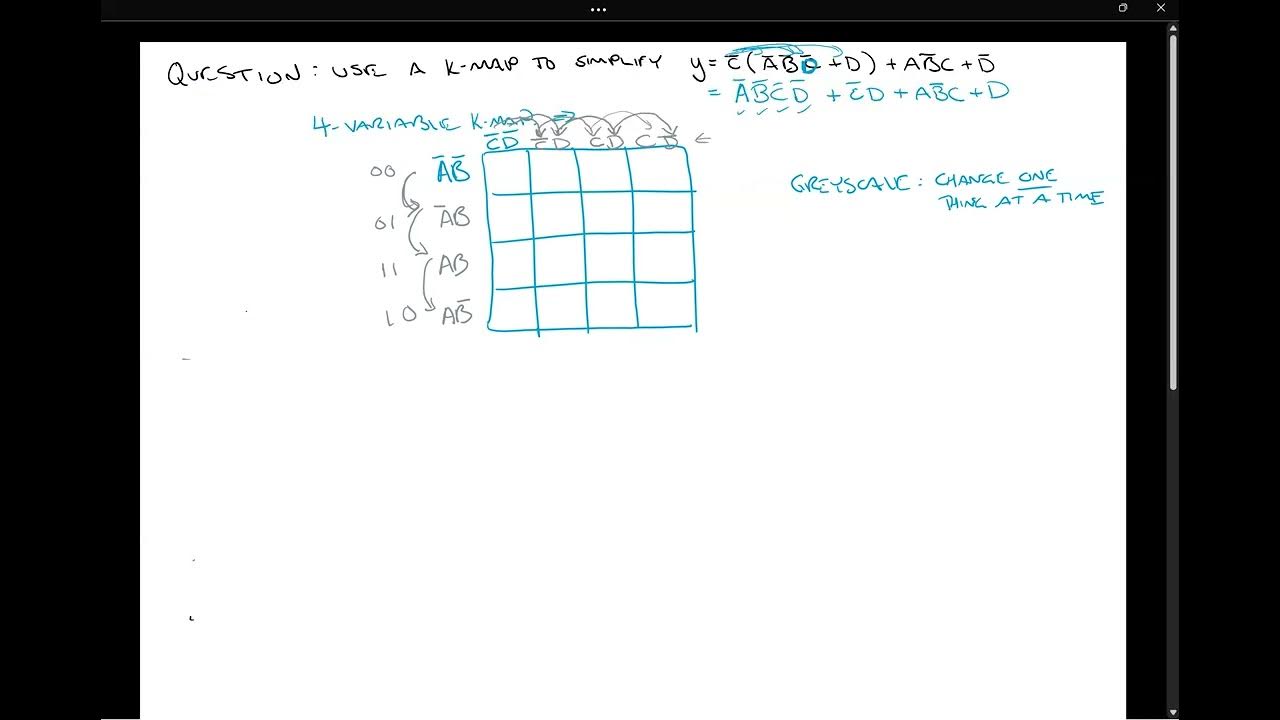 QUESTION: USE A K-MAP TO SIMPLIFY y = C̅(A̅B̅D̅ + D) + AB̅C + D̅
= A̅B̅C̅D̅ + C̅D + AB̅C + D
4-VARIABLE K-MAP ⇒
C̅D̅ C̅D CD CD̅ ←
00 A̅B̅
01 A̅B
11 AB
10 AB̅
GREYSCALE: CHANGE ONE
THING AT A TIME